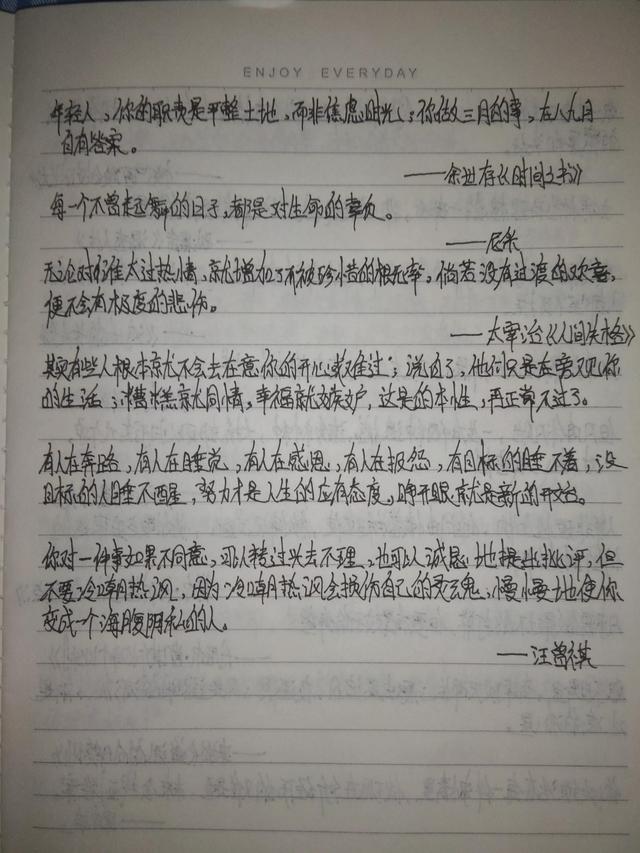 ENJOY EVERYDAY
年轻人,你的职责是平整土地,而非焦虑时光;你做三月的事,在八九月
自有答案。
——余世存《时间之书》
每一个不曾起舞的日子,都是对生命的辜负。
——尼采
无论对谁太过热情,就增加了不被珍惜的概率。倘若没有过渡的欢喜,
便不会有极度的悲伤。
——太宰治《人间失格》
其实有些人根本就不会去在意你的开心或难过;说白了,他们只是在旁观你
的生活;糟糕就同情,幸福就嫉妒,这是的本性,再正常不过了。
有人在奔路,有人在睡觉,有人在感恩,有人在报怨,有目标的睡不着,没
目标的人睡不醒,努力才是人生的应有态度,睁开眼就是新的开始。
你对一件事如果不同意,可以转过去不理,也可以诚恳地提出批评,但
不要冷嘲热讽,因为冷嘲热讽会损伤自己的灵魂,慢慢地使你
变成一个阴私的人。
——汪曾祺